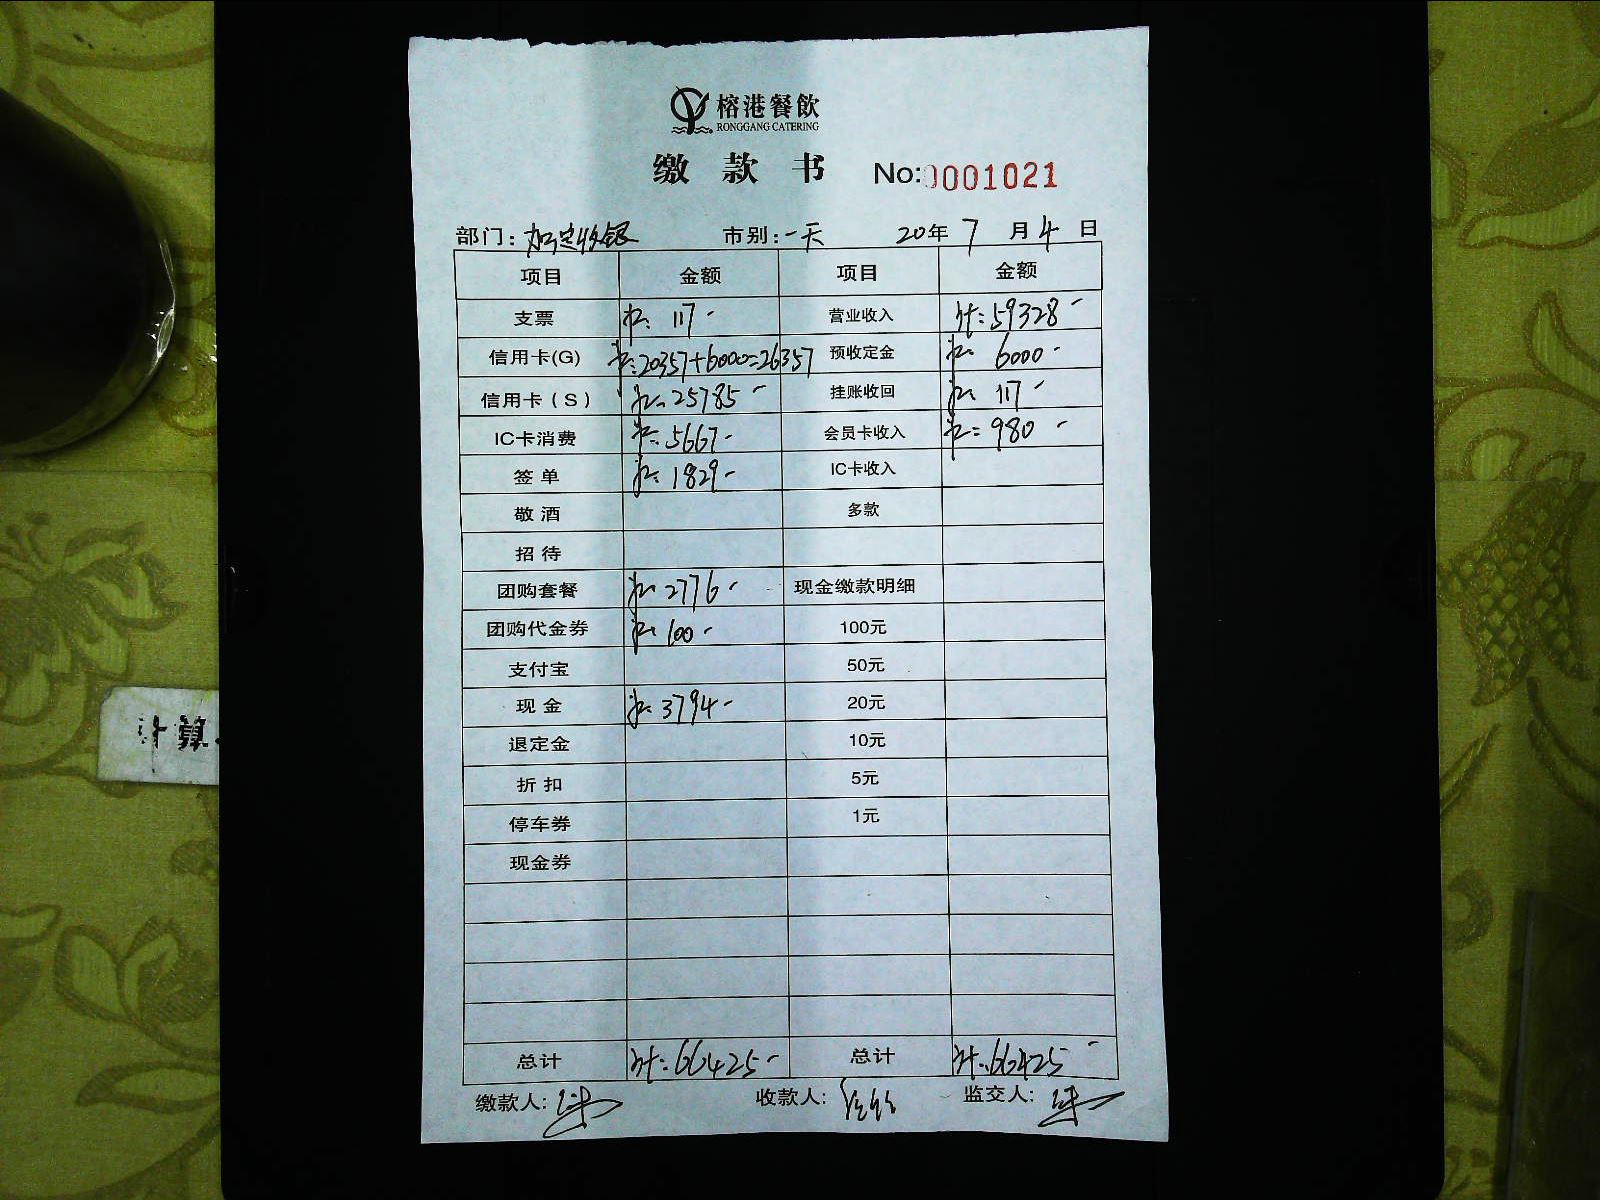 榕港餐飲
RONGGANG CATERING
缴 款 书 No:0001021
部门: 加定收银 市别: 一天 20年 7 月 4 日
项目 金额 项目 金额
支票 117- 营业收入 计:59328-
信用卡(G) 20357+6000=26357 预收定金 6000-
信用卡(S) 25785- 挂账收回 117-
IC卡消费 5667- 会员卡收入 980-
签单 1829- IC卡收入
敬酒 多款
招待
团购套餐 2776- 现金缴款明细
团购代金券 100- 100元
支付宝 50元
现金 3794- 20元
退定金 10元
折扣 5元
停车券 1元
现金券
总计 计:66425- 总计 计:66425-
缴款人: 收款人: 监交人:
计算